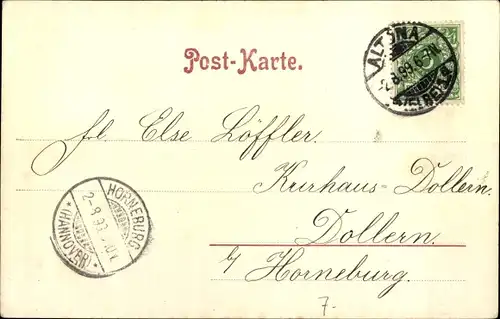 Post-Karte.
ALTONA
2.8.99.6-7N.
(ELBE)
frl. Else Löffler.
Kurhaus-Dollern.
Dollern.
b/ Horneburg.
HORNEBURG
2-8 99
*(HANNOVER)*
7-